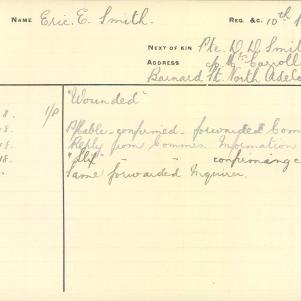 NAME Eric. E. Smith. REG. &C. 10th
NEXT OF KIN Pte. D. D. Smi
ADDRESS c/o Mrs Carroll
Barnard St. North Adela
8. 1/P "Wounded"
18. confirmed. forwarded Com
18. Reply from Commrs. Information
18. " " confirming c
" Same forwarded Inquirer.